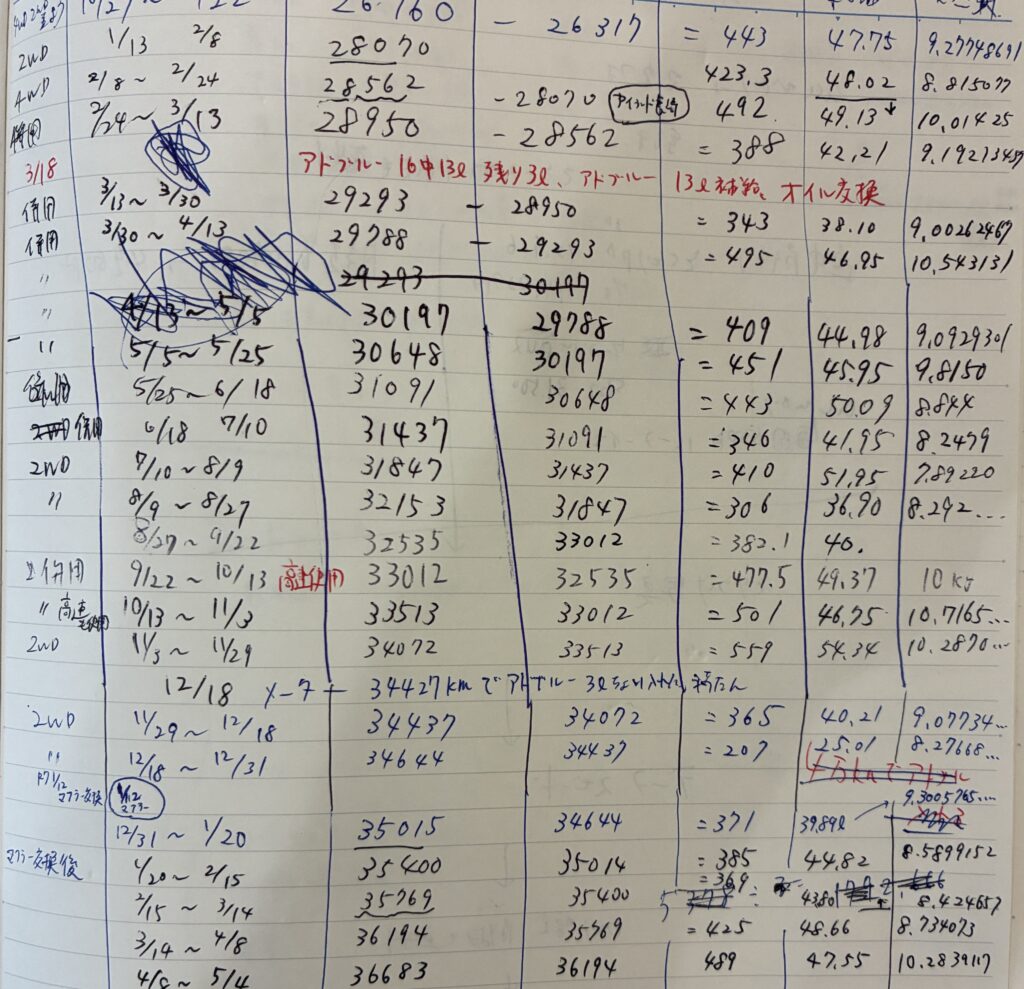 26760 - 26317 = 443 47.75 9.27748691
2WD 1/13 2/8 28070 423.3 48.02 8.815077
4WD 2/8~ 2/24 28562 - 28070 492 49.13 10.01425
併用 2/24~ 3/13 28950 - 28562 = 388 42.21
3/18 アドブルー 16中13ℓ 残り3ℓ、アドブルー 13ℓ補給、オイル交換
併用 3/13~ 3/30 29293 - 28950 = 343 38.10 9.00262467
併用 3/30~ 4/13 29788 - 29293 = 495 46.95 10.543131
〃 29293 30197
〃 4/13~ 5/5 30197 29788 = 409 44.98 9.0929301
〃 5/5~ 5/25 30648 30197 = 451 45.95 9.8150
併用 5/25~ 6/18 31091 30648 = 443 50.09 8.844
2WD 併用 6/18 7/10 31437 31091 = 346 41.95 8.2479
2WD 7/10~ 8/9 31847 31437 = 410 51.95 7.89220
〃 8/9~ 8/27 32153 31847 = 306 36.90 8.292...
8/27~ 9/22 32535 33012 = 382.1 40.
併用 9/22~ 10/13 高速使用 33012 32535 = 477.5 49.37
〃 高速 10/13~ 11/3 33513 33012 = 501 46.75 10.7165...
2WD 11/3~ 11/29 34072 33513 = 559 54.34 10.2870...
12/18 メーター 34427kmでアドブルー3ℓ
2WD 11/29~ 12/18 34437 34072 = 365 40.21 9.07734...
〃 12/18~ 12/31 34644 34437 = 207 25.01 8.27668...
R7 1/12 マフラー交換 1/12 マフラー 9.3005765...
12/31~ 1/20 35015 34644 = 371 39.89ℓ
マフラー交換後 1/20~ 2/15 35400 35014 = 385 44.82 8.5899152
2/15~ 3/14 35769 35400 = 369 43.80 8.424657
3/14~ 4/8 36194 35769 = 425 48.66 8.734073
4/8~ 5/4 36683 36194 489 47.55 10.2839117